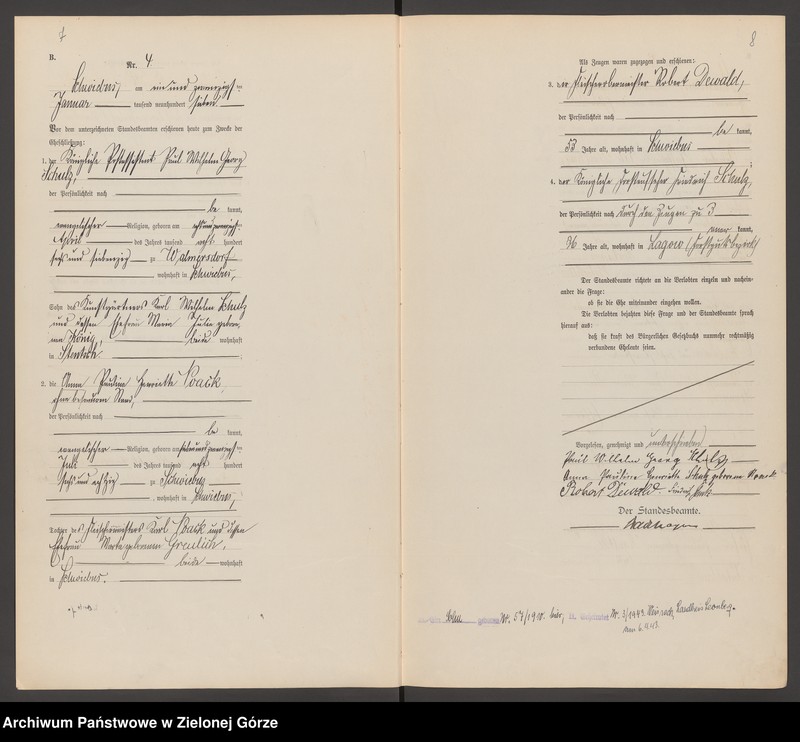 7
B.
Nr. 4
Schwiebus, am ein und zwanzigsten
Januar tausend neunhundert sieben
Vor dem unterzeichneten Standesbeamten erschienen heute zum Zwecke der
Eheschließung:
1. der Königliche Postassistent Paul Wilhelm Georg
Schulz,
der Persönlichkeit nach
be kannt,
evangelischer Religion, geboren am
April des Jahres tausend acht hundert
sechs und siebenzig zu Walmersdorf
wohnhaft in Schwiebus,
Sohn des Kunstgärtners Karl Wilhelm Schulz
und dessen Ehefrau Marie Julie gebore-
nen König, beide wohnhaft
in Stentsch.
2. die Anna Pauline Henriette Noack,
ohne besonderen Stand,
der Persönlichkeit nach
be kannt,
evangelischer Religion, geboren am
Juli des Jahres tausend acht hundert
sechs und achtzig zu Schwiebus
, wohnhaft in Schwiebus,
Tochter des Karl Noack und dessen
Ehefrau geborenen Greulich,
beide wohnhaft
in Schwiebus.
8
Als Zeugen waren zugezogen und erschienen:
3. der Fleischerobermeister Robert Dewald,
der Persönlichkeit nach
be kannt,
53 Jahre alt, wohnhaft in Schwiebus
4. der Königliche Friedrich Schulz,
der Persönlichkeit nach durch den Zeugen zu 3
kannt,
36 Jahre alt, wohnhaft in Lagow
Der Standesbeamte richtete an die Verlobten einzeln und nachein-
ander die Frage:
ob sie die Ehe miteinander eingehen wollen.
Die Verlobten bejahten diese Frage und der Standesbeamte sprach
hierauf aus:
daß sie kraft des Bürgerlichen Gesetzbuchs nunmehr rechtmäßig
verbundene Eheleute seien.
Vorgelesen, genehmigt und unterschrieben
Paul Wilhelm Georg Schulz
Anna Pauline Henriette Schulz geborene Noack
Robert Dewald. Friedrich Schulz
Der Standesbeamte.
Nr. 57/1910 hier, Nr. 3/1943
Archiwum Państwowe w Zielonej Górze